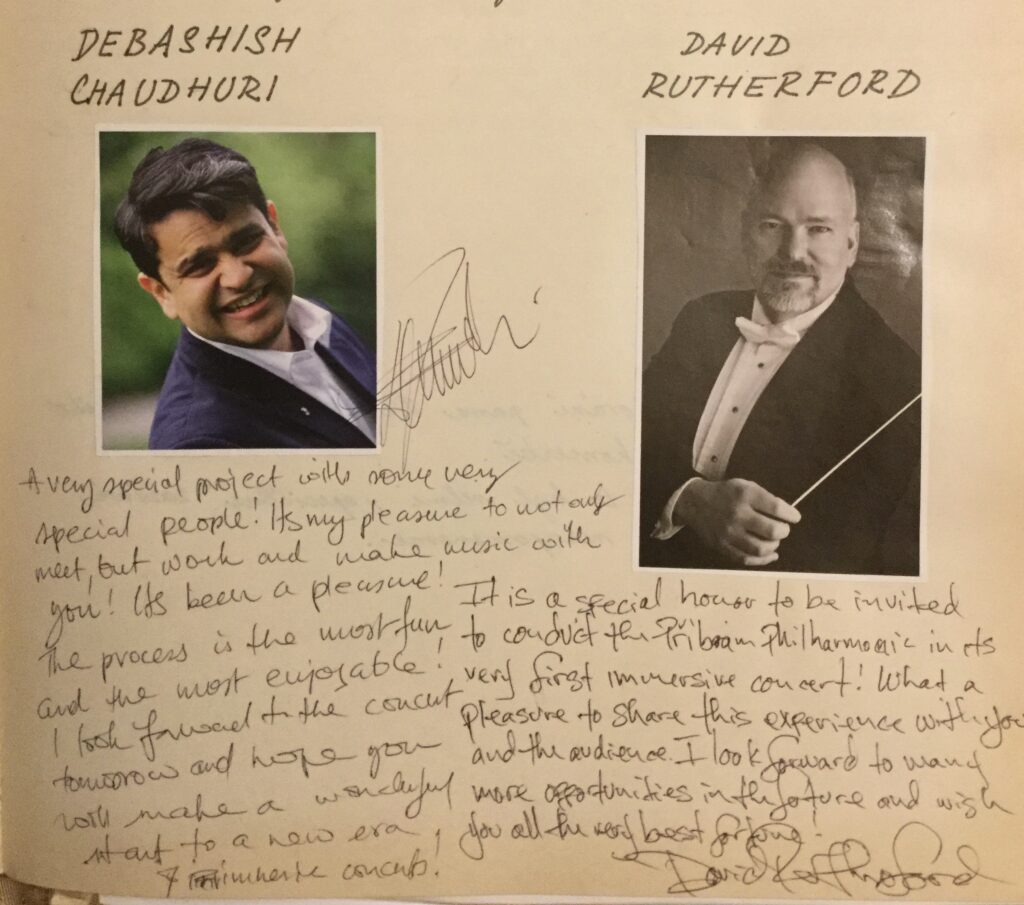 DEBASHISH
CHAUDHURI
A very special project with some very
special people! Its my pleasure to not only
meet, but work and make music with
you! Its been a pleasure!
The process is the most fun
and the most enjoyable!
I look forward to the concert
tomorrow and hope you
will make a wonderful
start to a new era
concerts!
DAVID
RUTHERFORD
It is a special honor to be invited
to conduct the Pribram Philharmonic in its
very first immersive concert! What a
pleasure to share this experience with you
and the audience. I look forward to many
more opportunities in the future and wish
you all the very best fortune!
David Rutherford